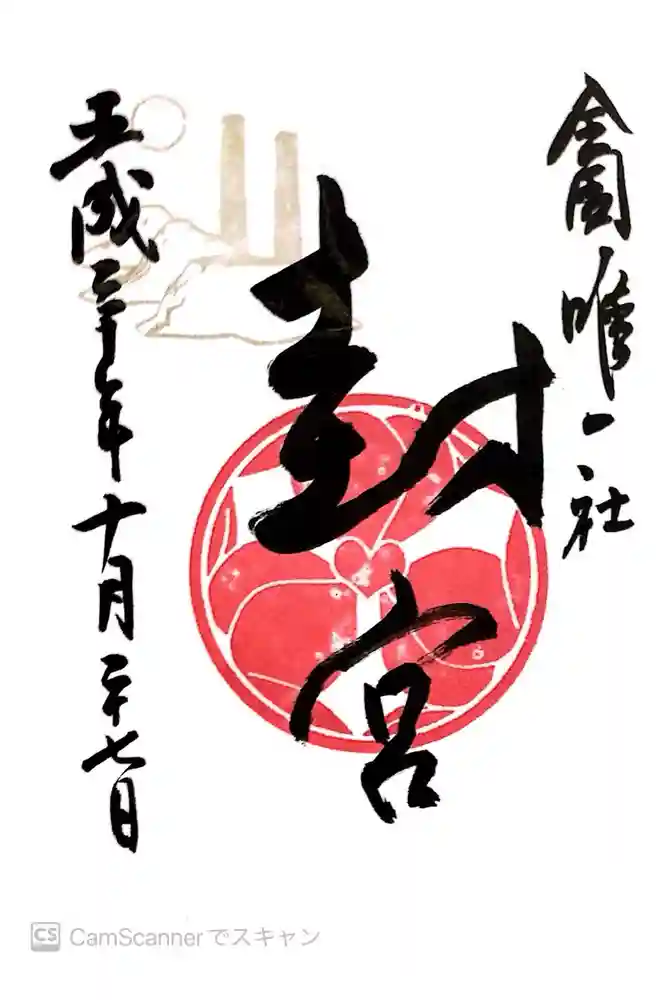 全国唯一社
封宮
平成三十年十月二十七日
CS CamScannerでスキャン